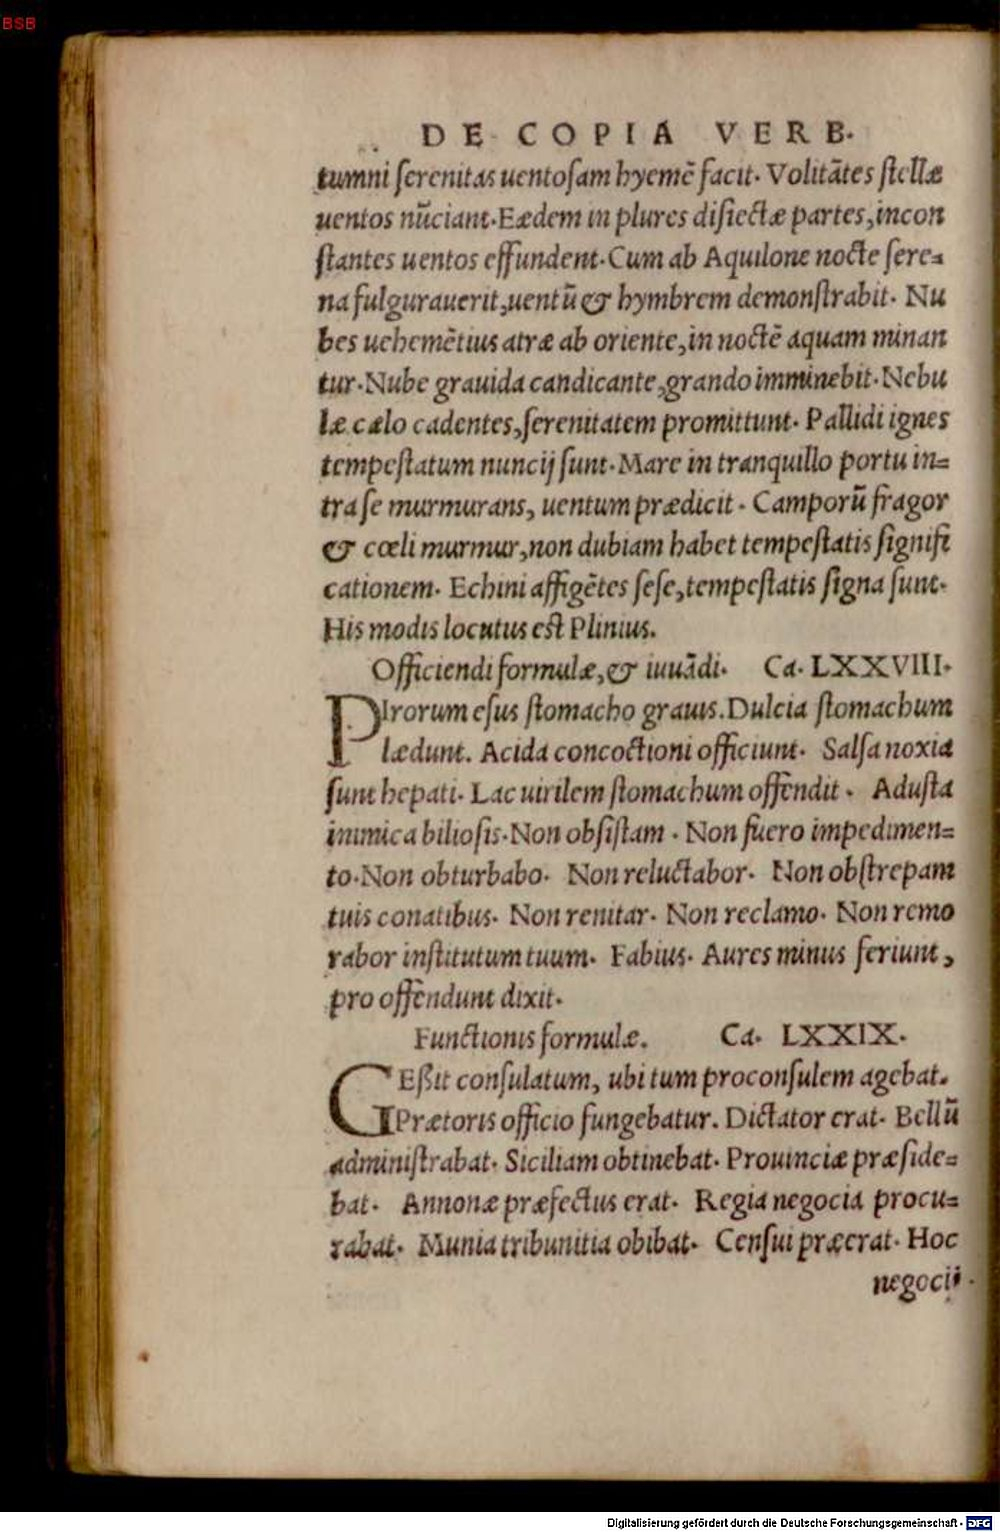 BSB
DE COPIA VERB.
tumni ſerenitas uentoſam hyemē facit. Volitātes ſtellæ
uentos nūciant. Eædem in plures diſiectæ partes, incon
ſtantes uentos effundent. Cum ab Aquilone nocte ſere=
na fulgurauerit, uentū & hymbrem demonſtrabit. Nu
bes uehemētius atræ ab oriente, in noctē aquam minan
tur. Nube grauida candicante, grando imminebit. Nebu
læ cælo cadentes, ſerenitatem promittunt. Pallidi ignes
tempeſtatum nuncij ſunt. Mare in tranquillo portu in=
tra ſe murmurans, uentum prædicit. Camporū fragor
& cœli murmur, non dubiam habet tempeſtatis ſignifi
cationem. Echini affigētes ſeſe, tempeſtatis ſigna ſunt.
His modis locutus eſt Plinius.
Officiendi formulæ, & iuuādi. Ca. LXXVIII.
PIrorum eſus ſtomacho grauis. Dulcia ſtomachum
lædunt. Acida concoctioni officiunt. Salſa noxia
ſunt hepati. Lac uirilem ſtomachum offendit. Aduſta
inimica bilioſis. Non obſiſtam. Non fuero impedimen=
to. Non obturbabo. Non reluctabor. Non obſtrepam
tuis conatibus. Non renitar. Non reclamo. Non remo
rabor inſtitutum tuum. Fabius. Aures minus feriunt,
pro offendunt dixit.
Functionis formulæ. Ca. LXXIX.
GEßit conſulatum, ubi tum proconſulem agebat.
Prætoris officio fungebatur. Dictator erat. Bellū
adminiſtrabat. Siciliam obtinebat. Prouinciæ præſide=
bat. Annonæ præfectus erat. Regia negocia procu=
rabat. Munia tribunitia obibat. Cenſui præerat. Hoc
negocij
Digitalisierung gefördert durch die Deutsche Forschungsgemeinschaft - DFG